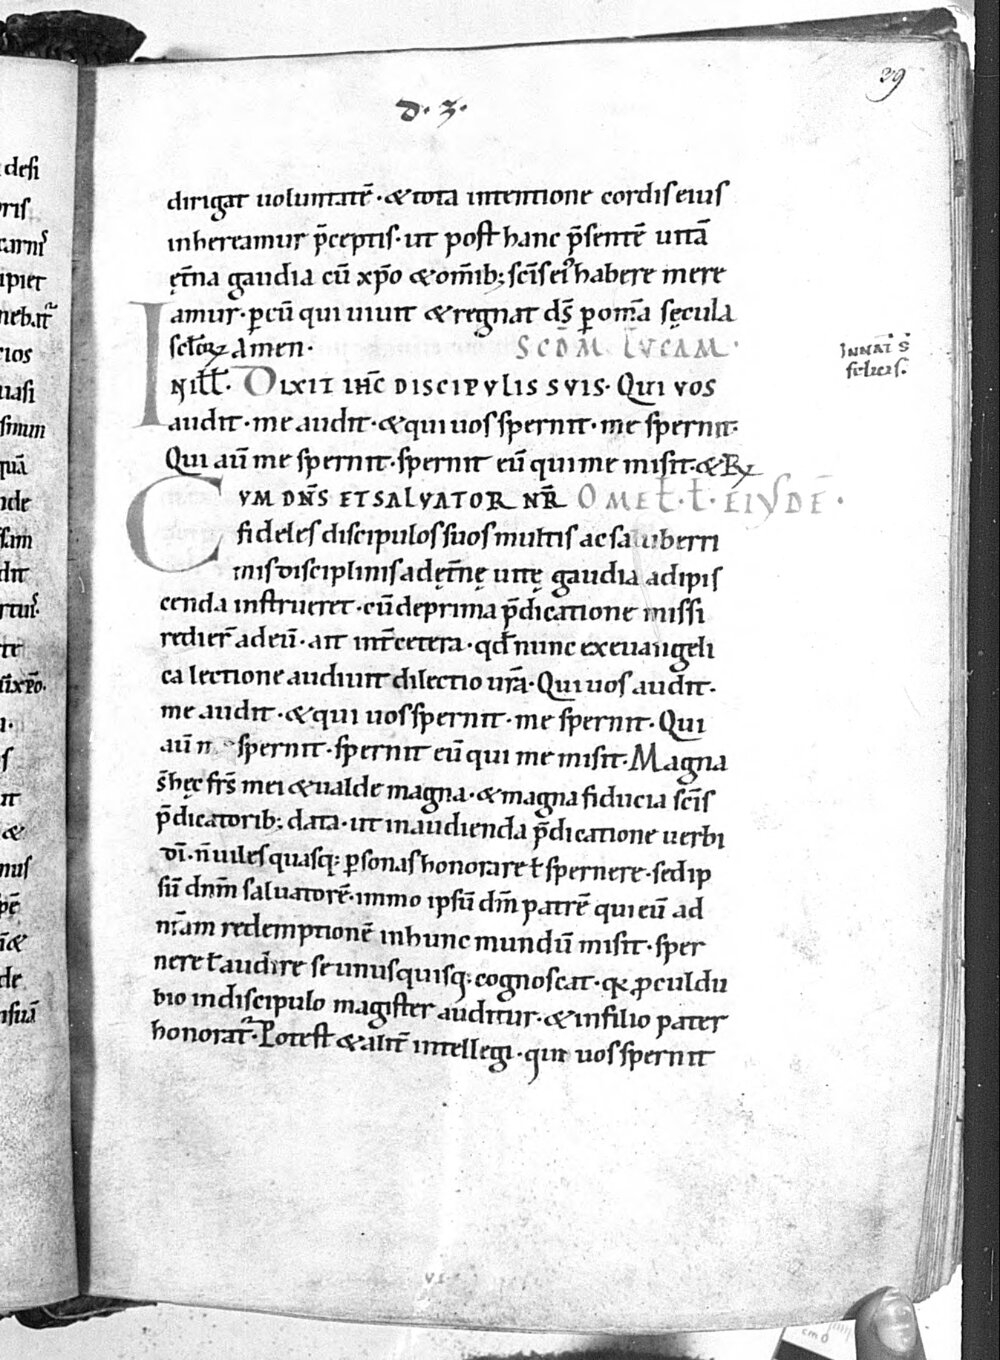 29
d. 3.
dirigat uoluntatē · & tota intentione cordis eius
inhereamur p̄ceptis · ut post hanc p̄sentē uitā
ęt̄na gaudia cū xp̄o & om̄ib; sc̄is ei᾽ habere mere
amur · p̱ eū qui uiuit & regnat ds̄ p̱ om̄a sęcula
scl̄oꝝ Amen · SCDM LVCAM ·
IN NAT̄ S̄
felicis.
IN ill̄ · DIXIT IHC̄ DISCIPVLIS SVIS · Qui vos
audit · me audit · & qui uos spernit · me spernit ·
Qui aū me spernit · spernit eū qui me misit · & R̶
CVM DN̄S ET SALVATOR NR̄ OMEL̄ · EIVSDĒ ·
fideles discipulos suos multis ac saluberri
mis disciplinis ad ęt̄nę uitę gaudia adipis
cenda instrueret · cū de prima p̄dicatione missi
redier̄ ad eū · ait int̄ cetera · qd̄ nunc ex euangeli
ca lectione audiuit dilectio ur̄a · Qui uos audit ·
me audit · & qui uos spernit · me spernit · Qui
aū m spernit · spernit eū qui me misit · Magna
s̄ hęc frs̄ mei & ualde magna · & magna fiducia sc̄is
p̄dicatorib; data · ut in audienda p̄dicatione uerbi
dī · n̄ uiles quasq; p̱sonas honorare ł spernere · sed ip
sū dnm̄ saluatorē · immo ipsū dm̄ patrē qui eū ad
nr̄am redemptionē in hunc mundū misit · sper
nere ł audire se unusquisq; cognoscat · qꝛ ꝓculdu
bio in discipulo magister auditur · & in filio pater
honorat᾽ · Potest & alit̄ intellegi · qui uos spernit
VI
desi
ris
carnis᾽
ipiet
cios
uasi
quā
nde
dit
te
it
&
mus
pē
de